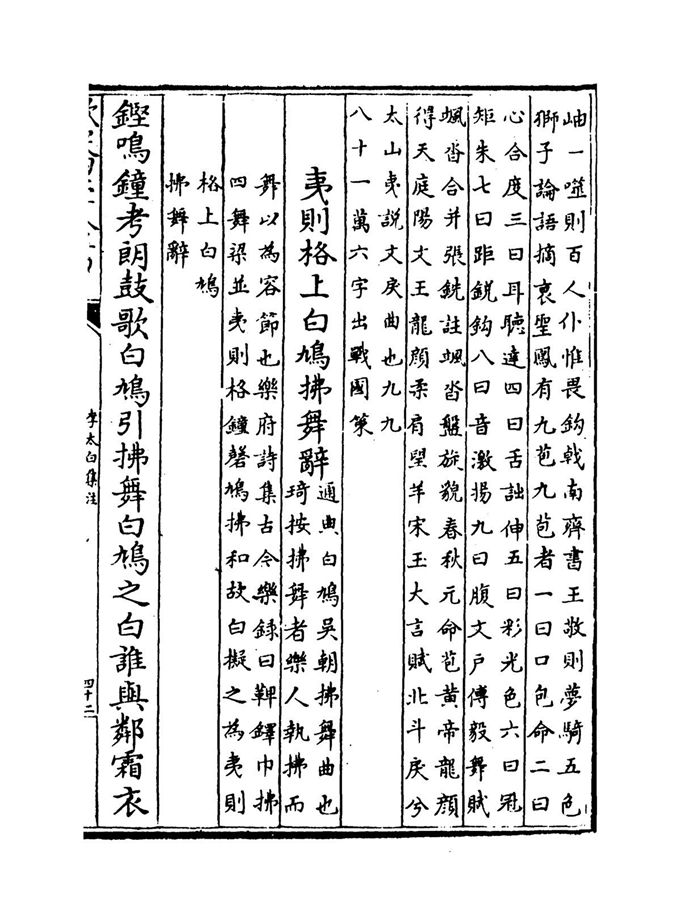 岫一噬則百人仆惟畏鈎戟南齊書王敬則夢騎五色
獅子論語摘衰聖鳳有九苞九苞者一曰口包命二曰
心合度三曰耳聽達四曰舌詘伸五曰彩光色六曰冠
矩朱七曰距銳鈎八曰音激揚九曰腹文戶傅毅舞賦
颯沓合并張銑註颯沓盤旋貌春秋元命苞黄帝龍顔
得天庭陽文王龍顔柔肩望羊宋玉大言賦北斗戾兮
太山夷説文戾曲也九九
八十一萬六字出戰國策
夷則格上白鳩拂舞辭
通典白鳩吳朝拂舞曲也
琦按拂舞者樂人執拂而
舞以為容節也樂府詩集古今樂録曰鞞鐸巾拂
四舞梁並夷則格鐘磬鳩拂和故白擬之為夷則
格上白鳩
拂舞辭
鏗鳴鐘考朗鼓歌白鳩引拂舞白鳩之白誰與鄰霜衣
李太白集注
四十二